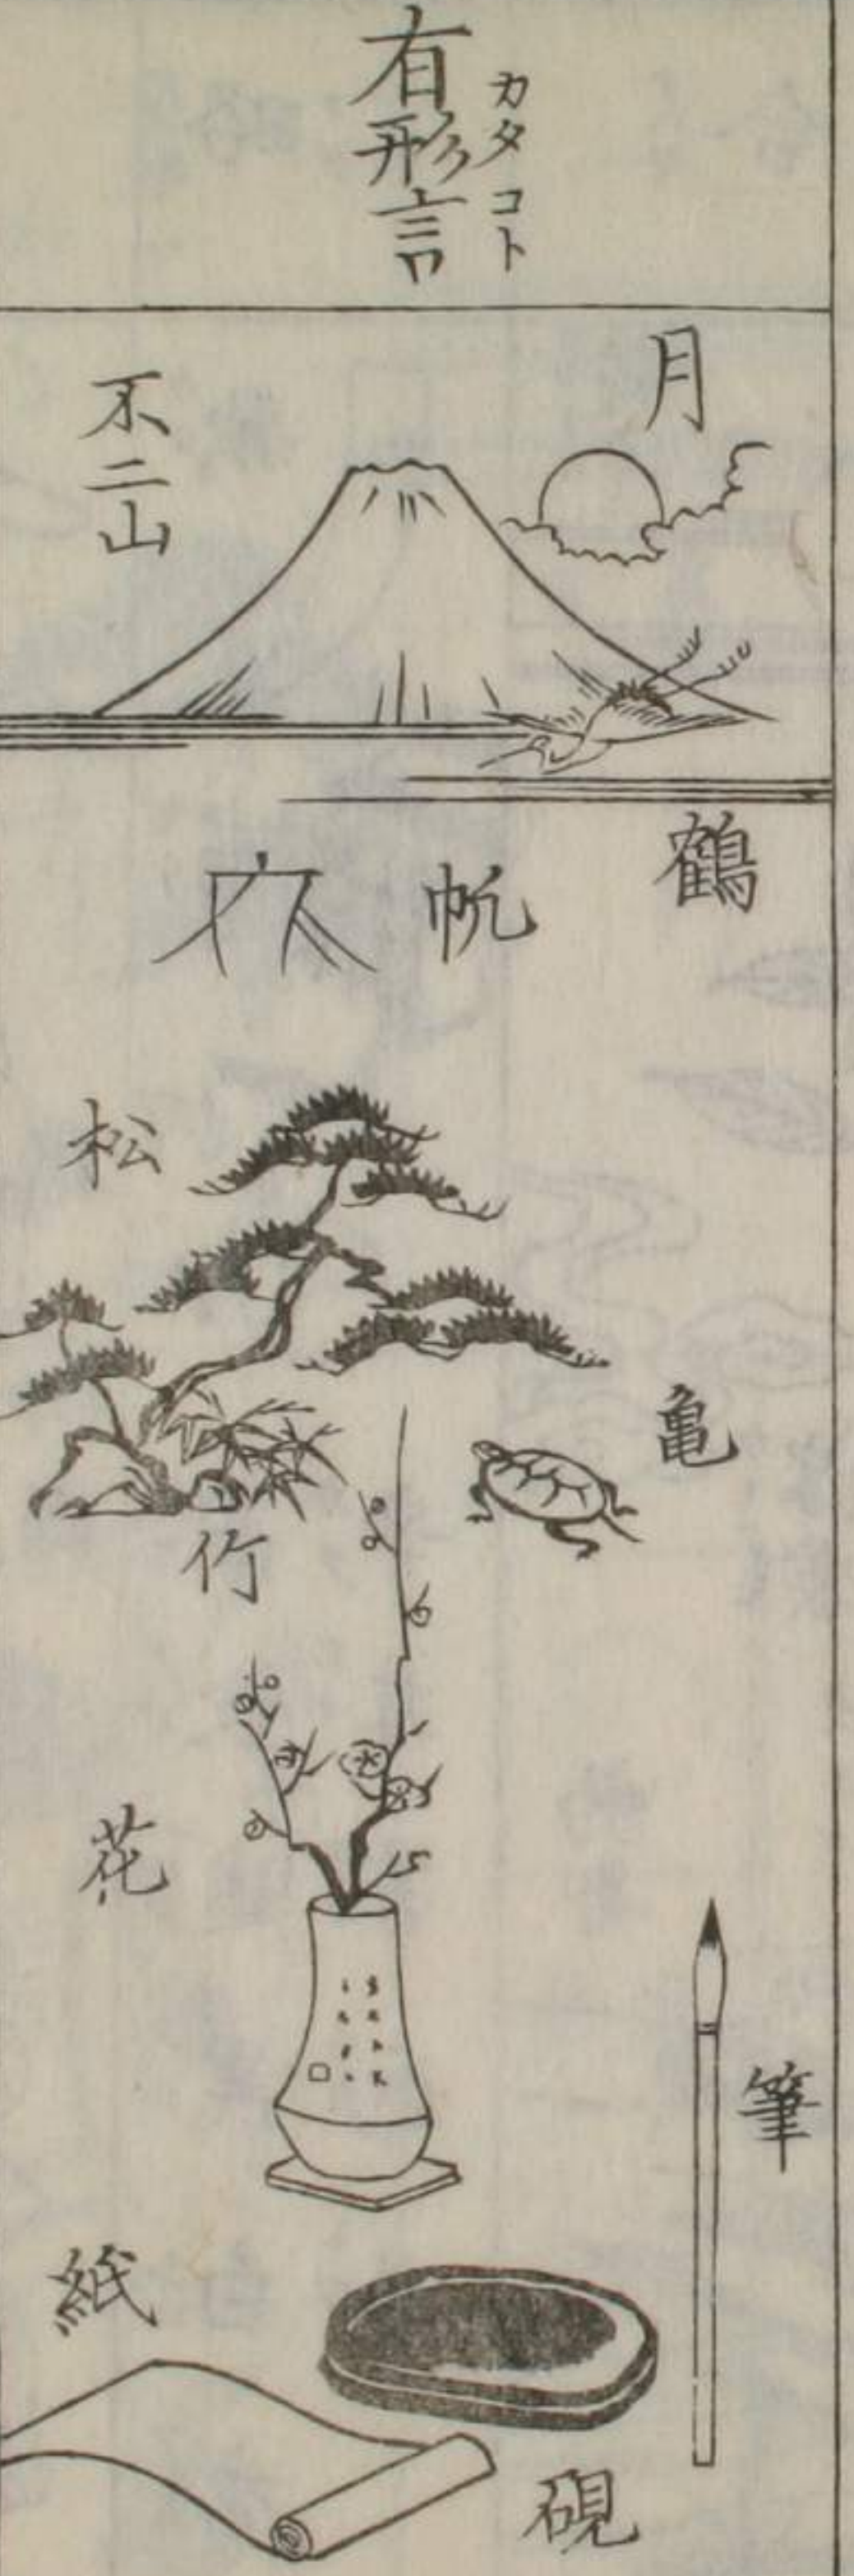 有形言
カタコト
月
不二山
鶴
帆
松
亀
竹
花
筆
紙
硯